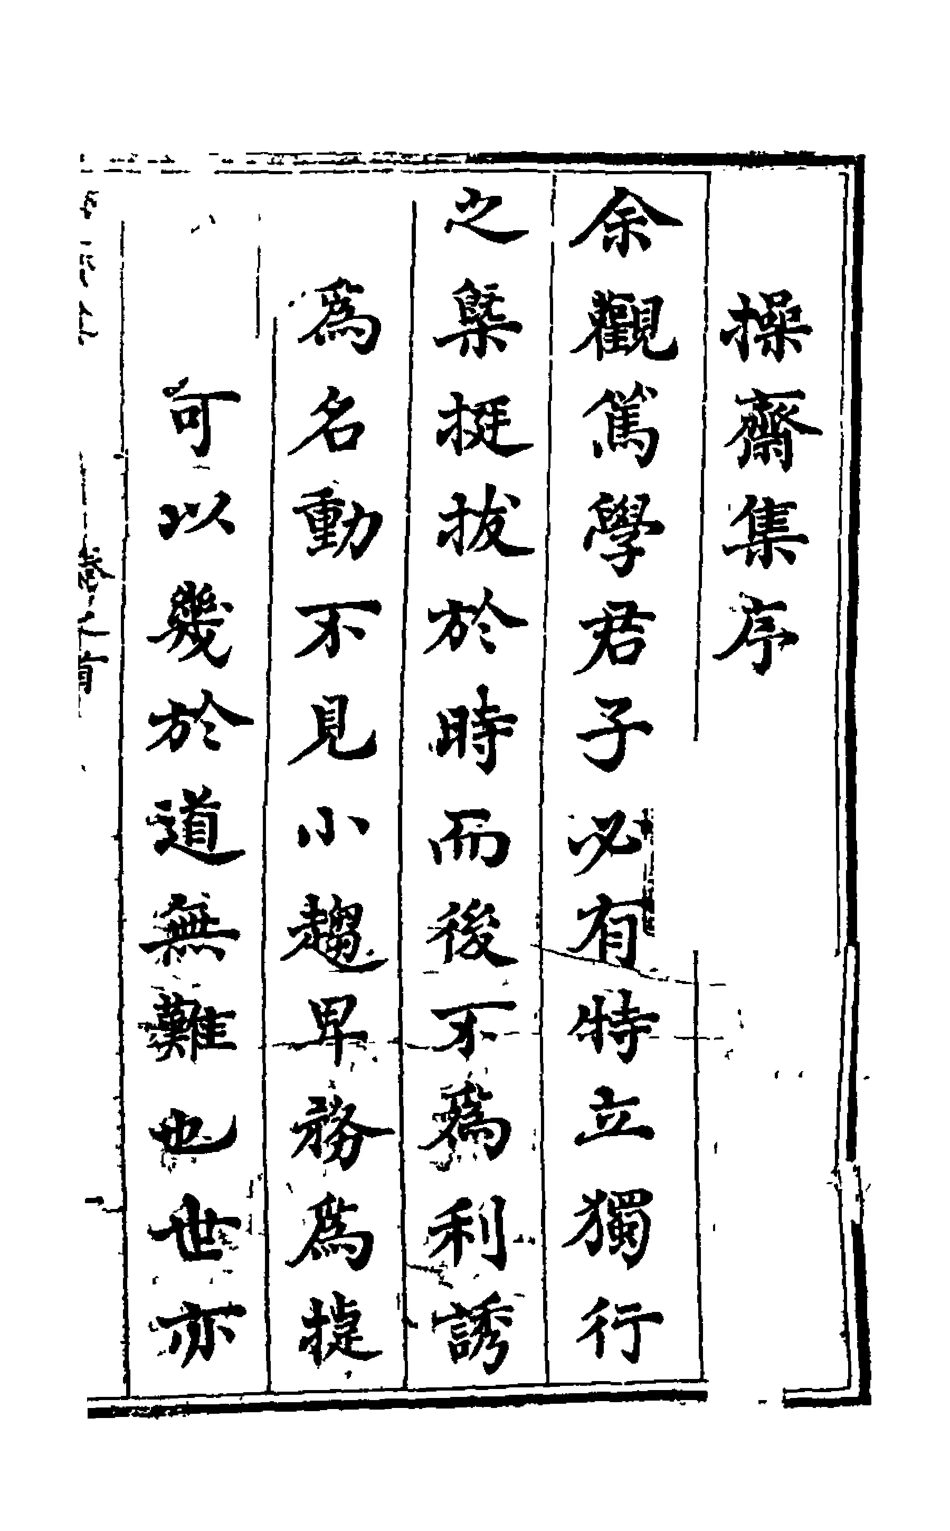 操齋集序
余觀篤學君子必有特立獨行
之槩挺拔於時而後不爲利誘
爲名動不見小趨卑務爲捷
可以幾於道無難也世亦
卷之首